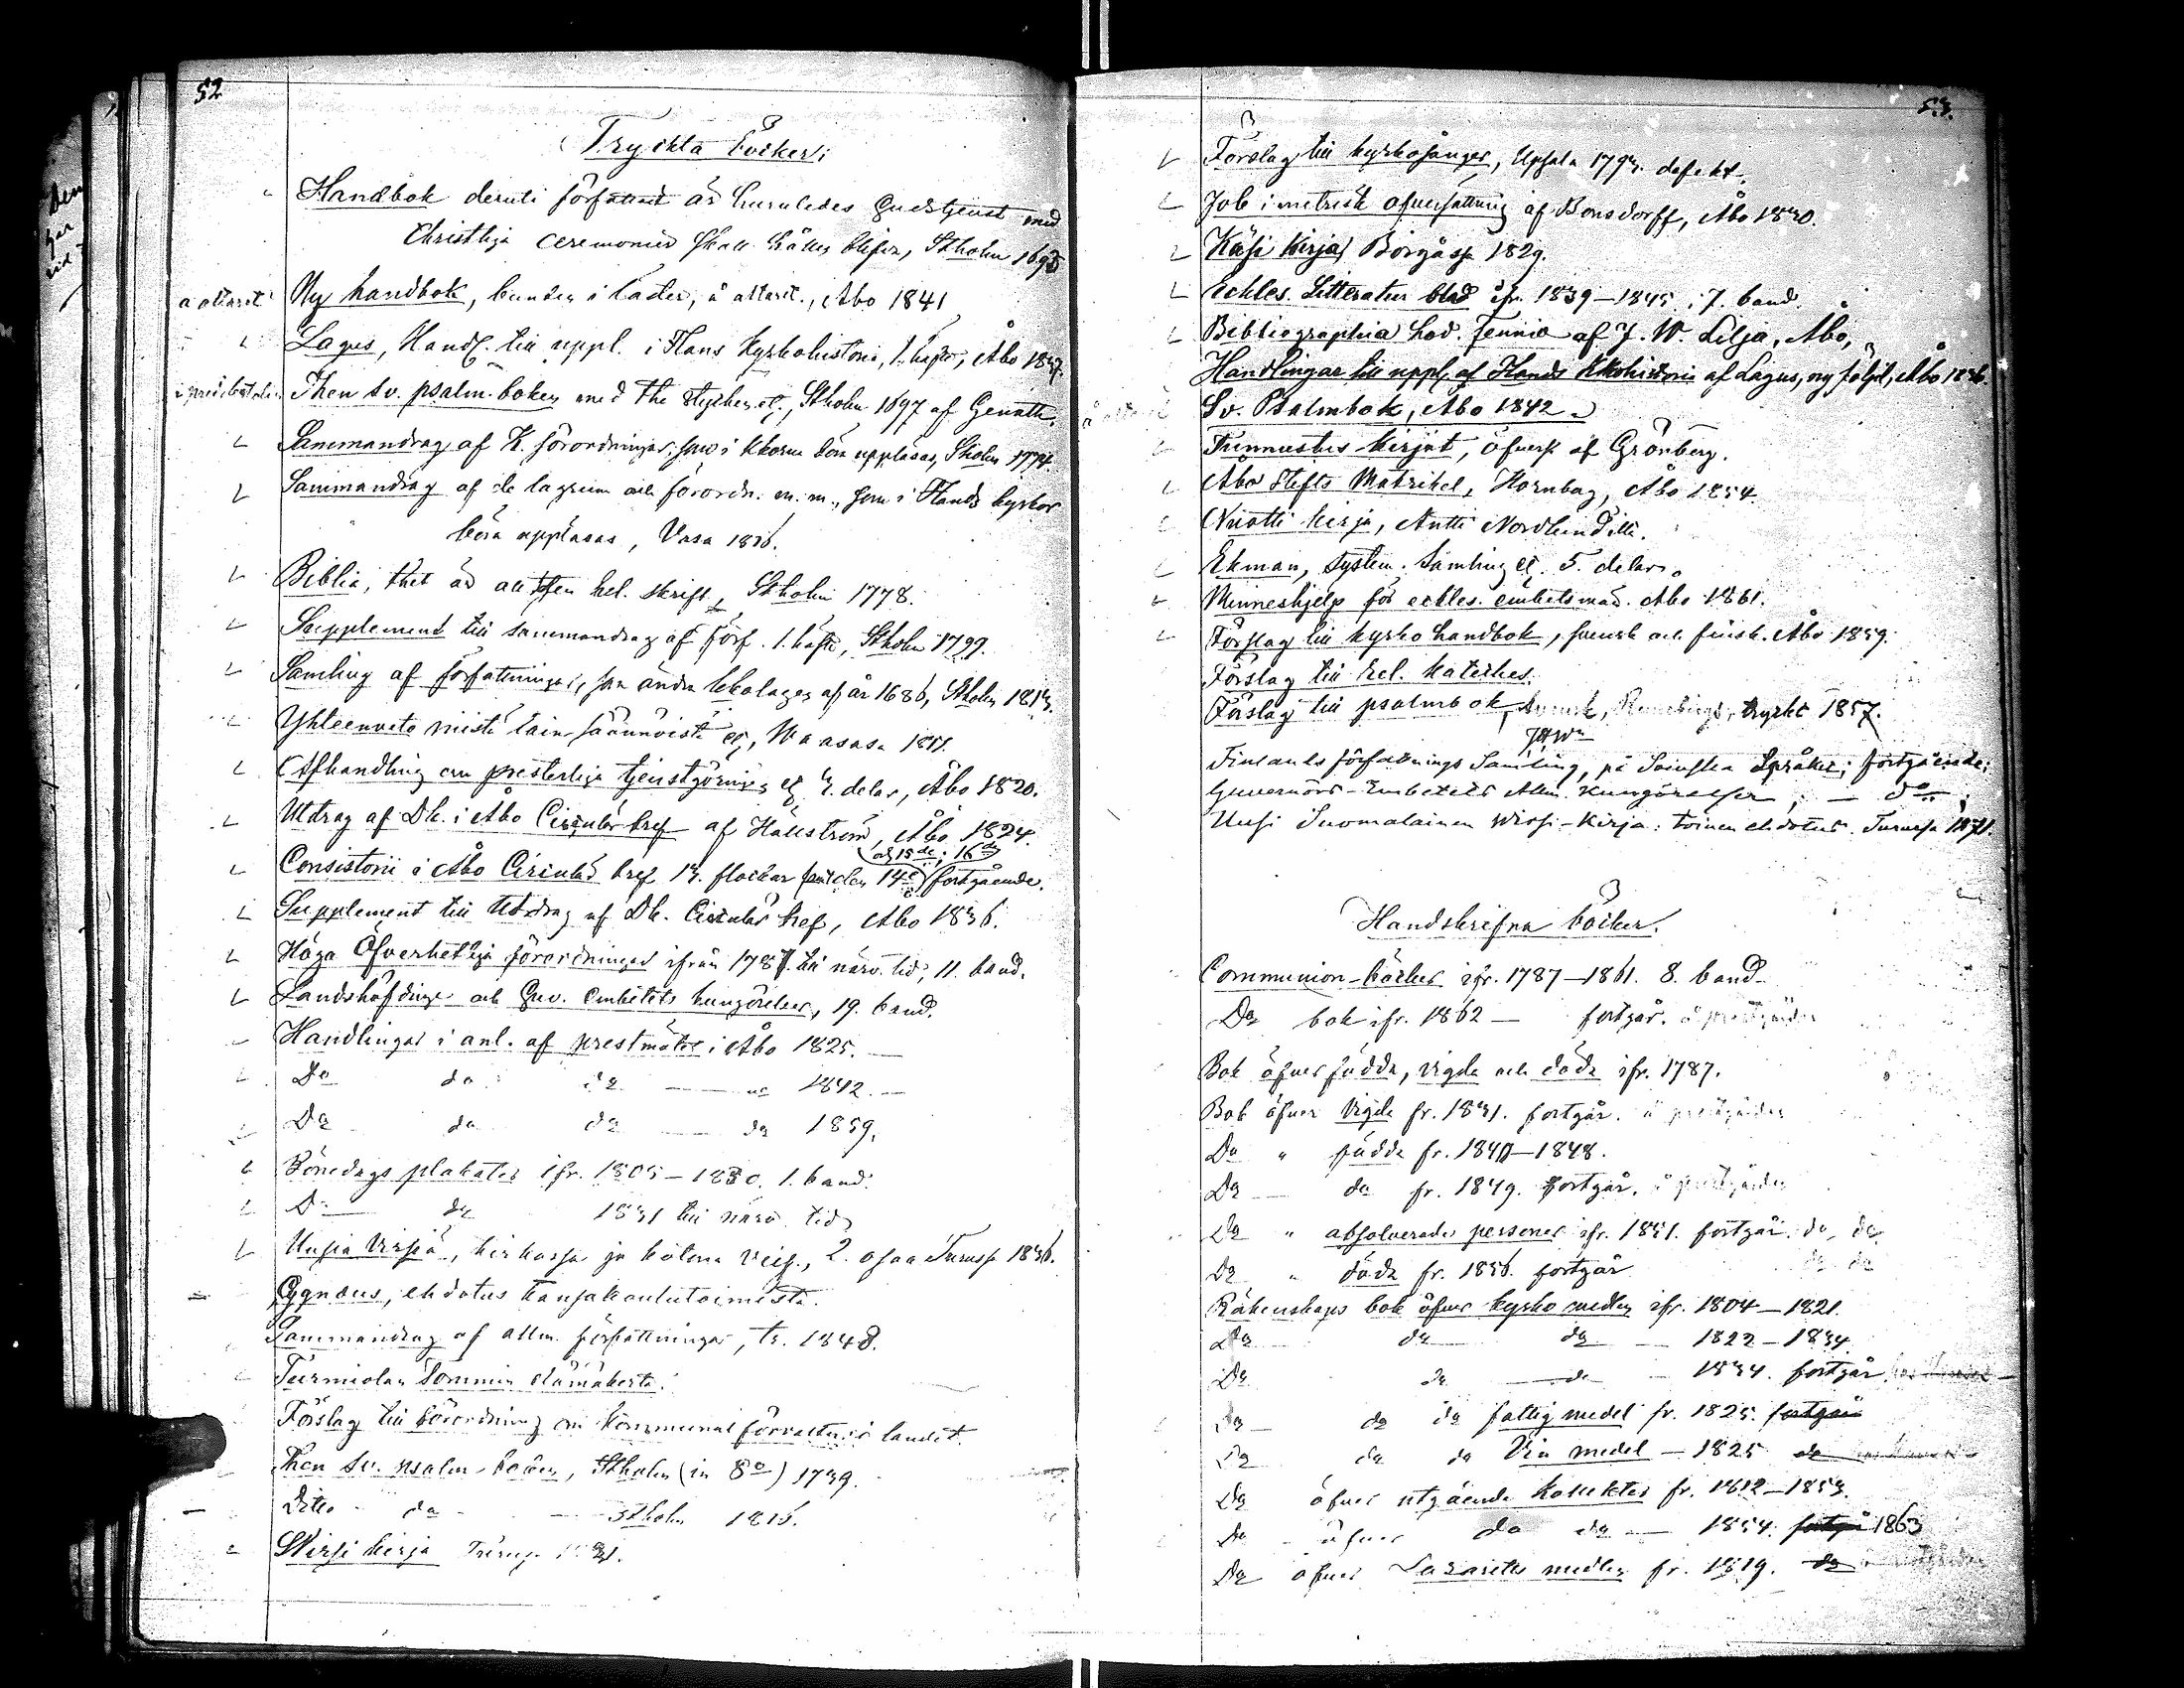 52
Tryckta böcker:
Handbok deruti författadt är huruledes Gudstjenst med
Christliga ceremonier skall hållas blifva, Stholm 1693
å altaret Ny handbok, bunden i läder, å altaret, Åbo 1841
Lagus, Handl. till uppl. i Flans kyrkohistoria, 1. häftet, Åbo 1837.
Then sv. psalm-boken med the stycken etc, Stholm 1697 af Genath.
Sammandrag af K. förordningar, som i kkorna böra uppläsas, Stholm 1774.
Sammandrag af de lagrum och förordn. m. m., som i Flands kyrkor
böra uppläsas, Vasa 1816.
Biblia, thet är all then hel. skrift, Stholm 1778.
Supplement till sammandrag af förf. 1. häfte, Stholm 1799.
Samling af författningar, som ändra lekolagen af år 1686, Stholm 1813.
Yhteenveto niistä lain säännöistä etc, Waasasa
Afhandling om presterliga tjenstgöring etc 3. delar, Åbo 1820.
Utdrag af Dk. i Åbo Circulär bref af Hällström, Åbo 1824.
och 15de; 16de
Consistorii i Åbo Circulär bref 13. flockar samt den 14e fortgående.
Supplement till Utdrag af Dk. Circulär bref, Åbo 1836.
Höga Öfverhetliga förordningar ifrån 1787 till närv. tid, 11. band.
Landshöfdinge och Guv. Embetets kungörelser, 19. band.
Handlingar i anl. af prestmötet i Åbo 1825.
Do do do do 1842.
Do do do do 1859.
Bönedags plakater ifr. 1805-1830. 1. band.
Do do 1831 till närv. tid
Uusia Virsiä, kirkossa ja kotona veis., 2. osaa Turussa 1836.
Cygnæus, ehdotus kansakoulutoimesta.
Sammandrag af allm. författningar, tr. 1848.
Turmiolan Tommin elämäkerta.
Förslag till förordning om kommunal förvaltn. i landet.
Then sv. psalm-boken, Stholm (in 8o) 1739.
Ditto do Stholm 1816.
Wirsi kirja
53.
Förslag till kyrkosånger, Upsala 1793. defekt.
Job i metrisk öfversättning af Bonsdorff, Åbo 1830.
Käsi Kirja, Borgåssa 1829.
Eckles. Litteratur blad ifr. 1839-1845, 7. band.
Bibliographia hod. Fennia af J. W. Lilja, Åbo,
Handlingar till uppl. af Flands kkohistoria af Lagus, ny följd, Åbo 1836.
Sv. Psalmbok, Åbo 1842
Tunnustus kirjat, öfvers. af Grönberg.
Åbo Stifts Matrikel, Hornborg, Åbo 1854.
Nuotti kirja, Antti Nordlundilta.
Ekman, system. samling etc. 5. delar.
Minneshjelp för eckles. embetsmän. Åbo 1861.
Förslag till kyrko handbok, svensk och finsk. Åbo 1859.
Förslag till hel. kateches.
Förslag till psalmbok, svensk, Runebergs, tryckt 1857.
Finlands författnings Samling, på Svenska Språket; fortgående;
Guvernörs-Embetets Allm. Kungörelser; — do;
Uusi Suomalainen Wirsi-Kirja: toinen ehdotus. Turussa 1871.
Handskrifna böcker.
Communion-böcker ifr. 1787-1861. 8. band
Do bok ifr. 1862 — fortgår.
Bok öfver födda, vigda och döda ifr. 1787.
Bok öfver vigda fr. 1831. fortgår.
Do " födda fr. 1840-1848.
Do do fr. 1849. fortgår.
Do " absolverade personer ifr. 1851. fortgår. do, do
Do " döda fr. 1856. fortgår do do
Räkenskaps bok öfver kyrko medlen ifr. 1804-1821.
Do do do 1822-1834
Do do do 1834. fortgår
Do do do fattig medel fr. 1825. fortgår
Do do do Vin medel — 1825 do
Do öfver utgående kollekter fr. 1812-1853.
Do öfver do do — 1854. fortgår 1863
Do öfver Lazaretts medlen fr. 1819. do